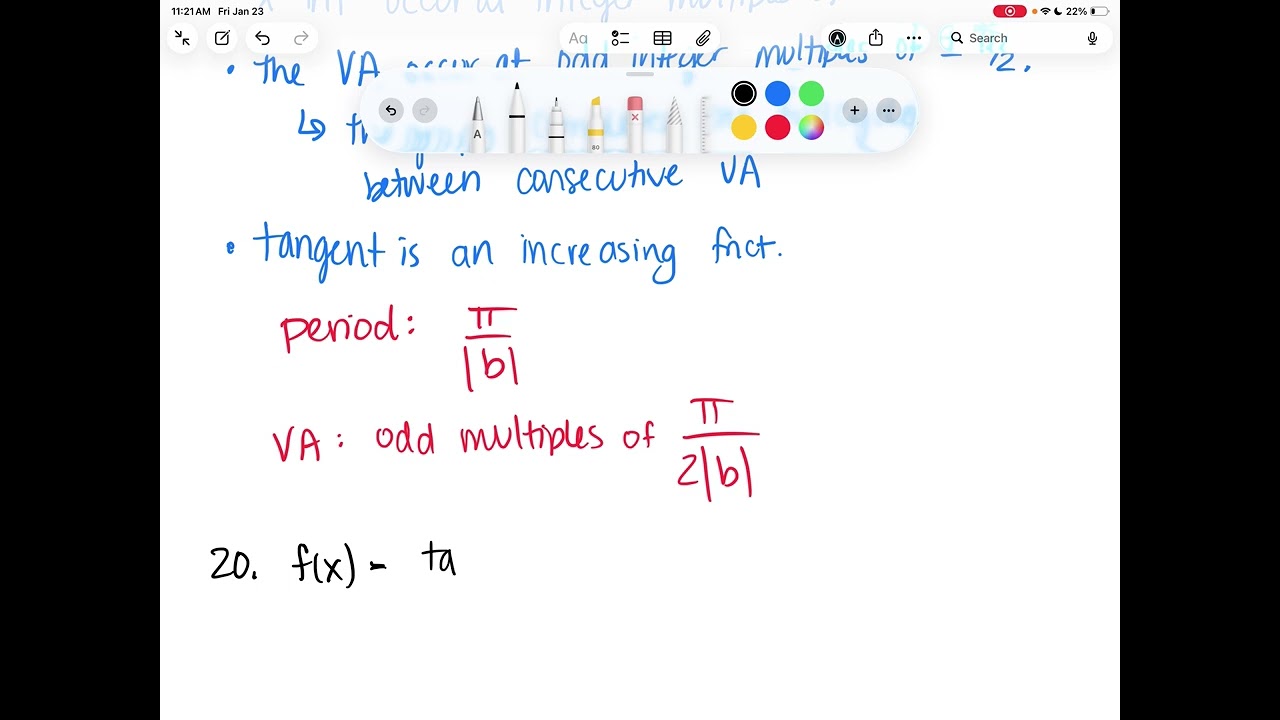 11:21 AM Fri Jan 23
22%
Aa
Search
• the VA occur at odd integer multiples of
↳
between consecutive VA
• tangent is an increasing fnct.
period: π/|b|
VA: odd multiples of π/2|b|
20. f(x) - ta
A
80